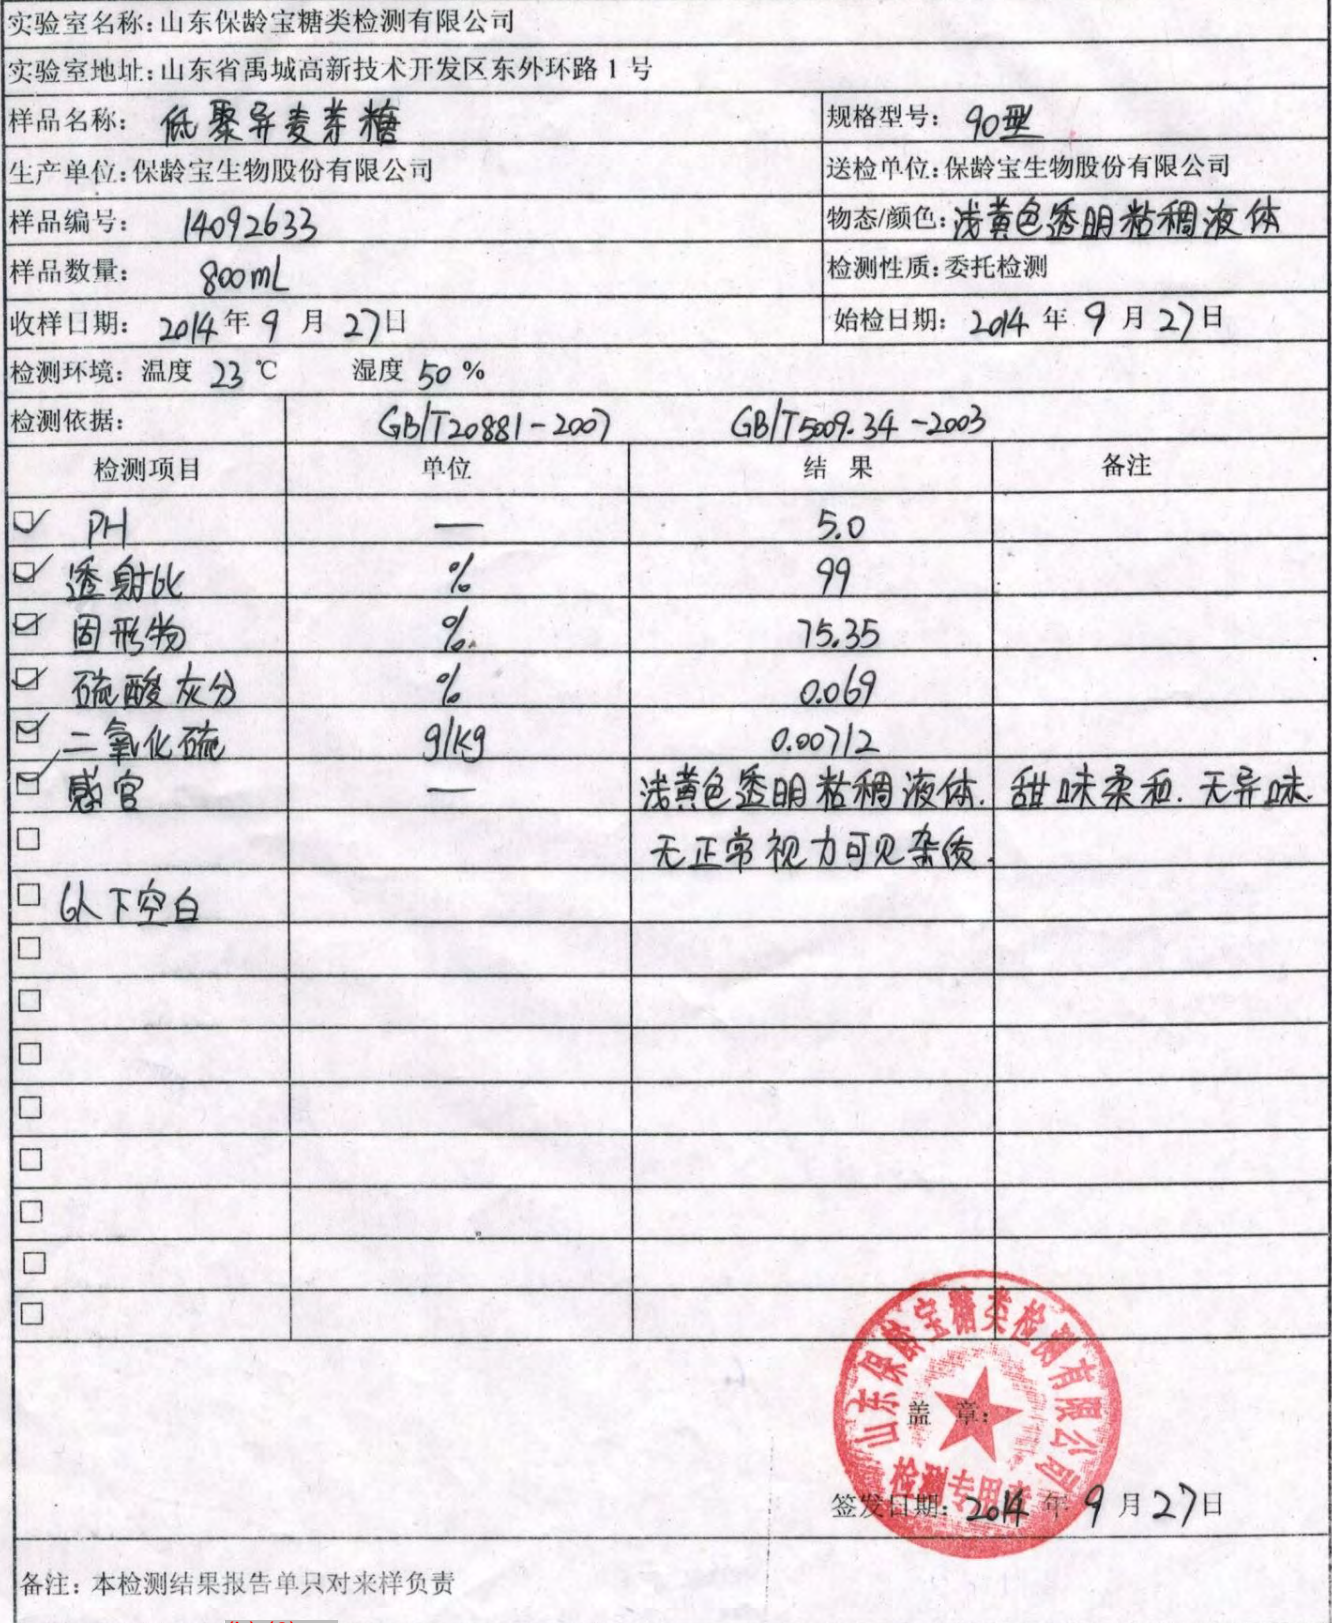 实验室名称:山东保龄宝糖类检测有限公司
实验室地址:山东省禹城高新技术开发区东外环路1号
样品名称: 低聚异麦芽糖 规格型号: 90型
生产单位:保龄宝生物股份有限公司 送检单位:保龄宝生物股份有限公司
样品编号: 14092633 物态/颜色:浅黄色透明粘稠液体
样品数量: 800mL 检测性质:委托检测
收样日期: 2014年9月27日 始检日期: 2014年9月27日
检测环境: 温度 23℃ 湿度 50%
检测依据: GB/T20881-2007 GB/T5009.34-2003
检测项目 单位 结果 备注
PH — 5.0
透射比 % 99
固形物 % 75.35
硫酸灰分 % 0.069
二氧化硫 g/kg 0.00712
感官 — 浅黄色透明粘稠液体. 甜味柔和. 无异味.
无正常视力可见杂质.
以下空白
山东保龄宝糖类检测有限公司
盖 章:
检测专用章
签发日期: 2014年9月27日
备注: 本检测结果报告单只对来样负责